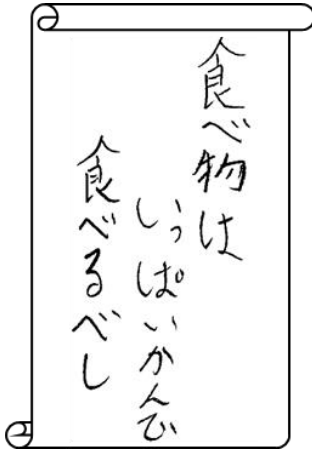 食べ物は
いっぱいかんひ
食べるべし